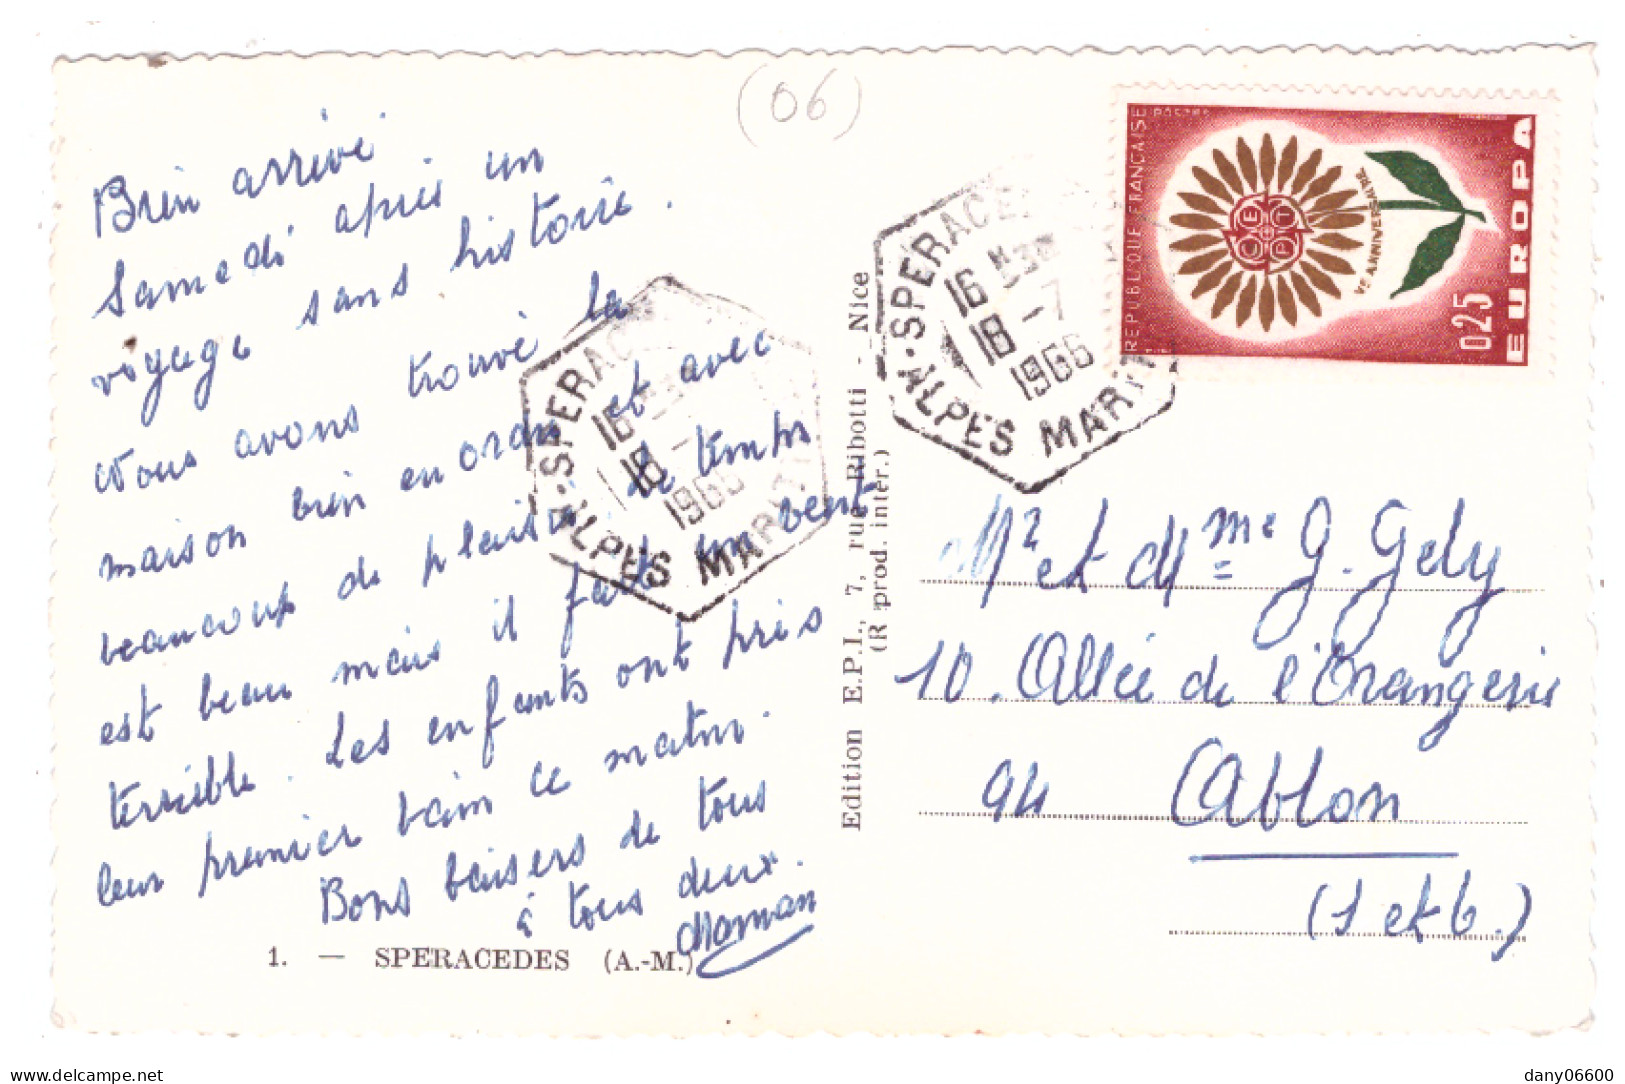 (06)
Bien arrivé
Samedi après un
voyage sans histoire.
Nous avons trouvé la
maison bien en ordre et avec
beaucoup de plaisir. le temps
est beau mais il fait un vent
terrible. Les enfants ont pris
leur premier bain ce matin.
Bons baisers de tous
à tous deux.
Maman
1. — SPERACEDES (A.-M.)
SPERAC
16
18 -
1965
ALPES MARIT
Edition E.P.I., 7, rue Ribotti - Nice
(Reprod. inter.)
SPERACE
16 H30
18 -7
1965
ALPES MARIT
REPUBLIQUE FRANCAISE
POSTES
CEPT
VE ANNIVERSAIRE
0,25
EUROPA
Mr et Mme G. Gely
10. Allée de l'Orangerie
94 Ablon
(S et O.)
delcampe.net
dany06600